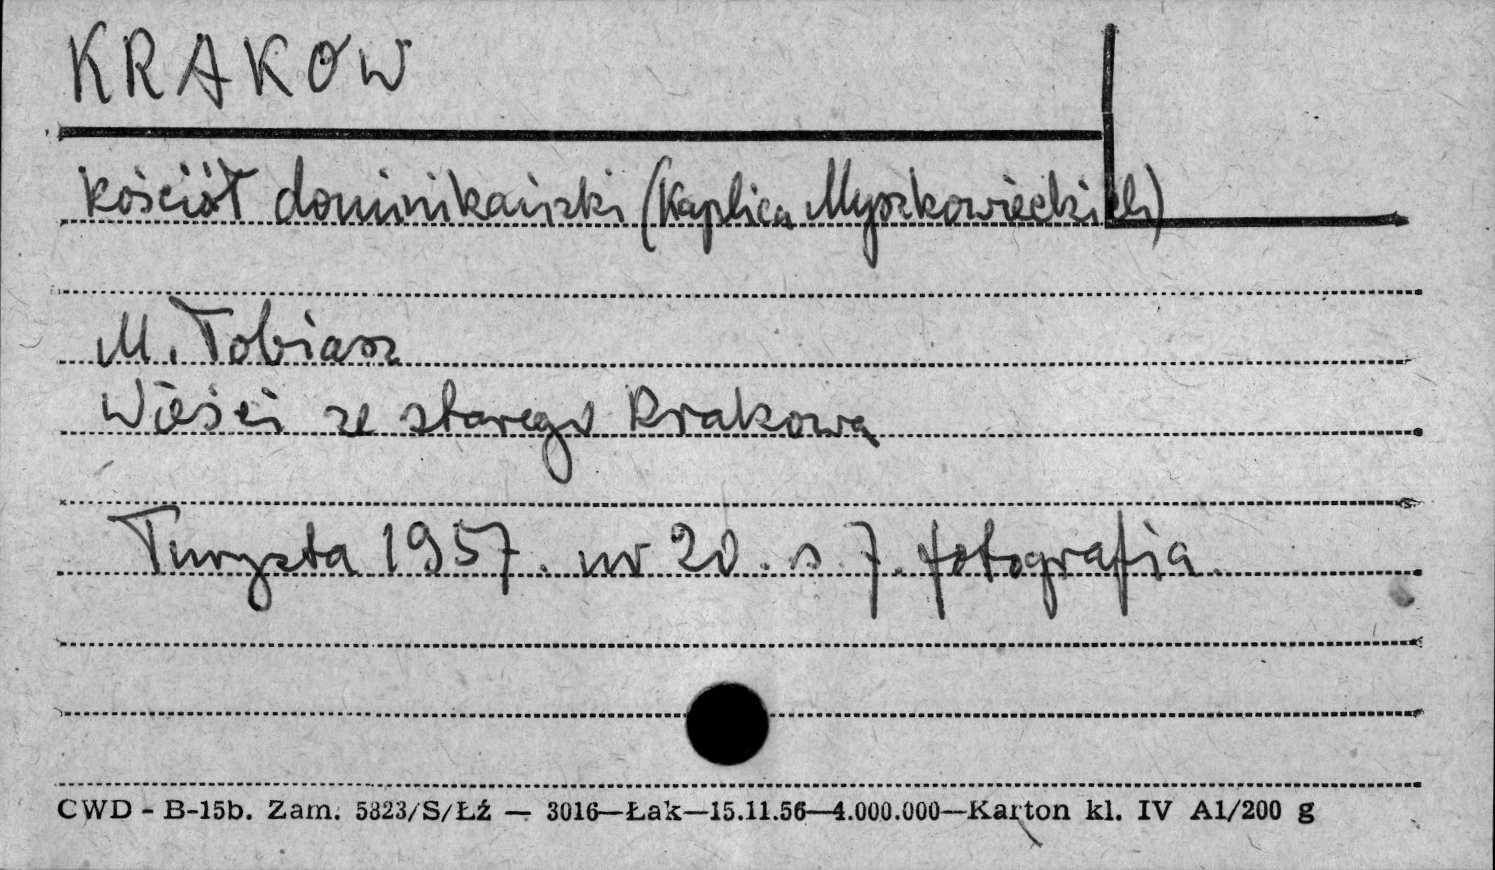 KRAKÓW
kościół dominikański (Kaplica Myszkowieckich)
M. Tobiasz
Wieści ze starego Krakowa
Turysta 1957. nr 20. s. 7. fotografia.
CWD - B-15b. Zam. 5823/S/Łź — 3016—Łak—15.11.56—4.000.000—Karton kl. IV A1/200 g